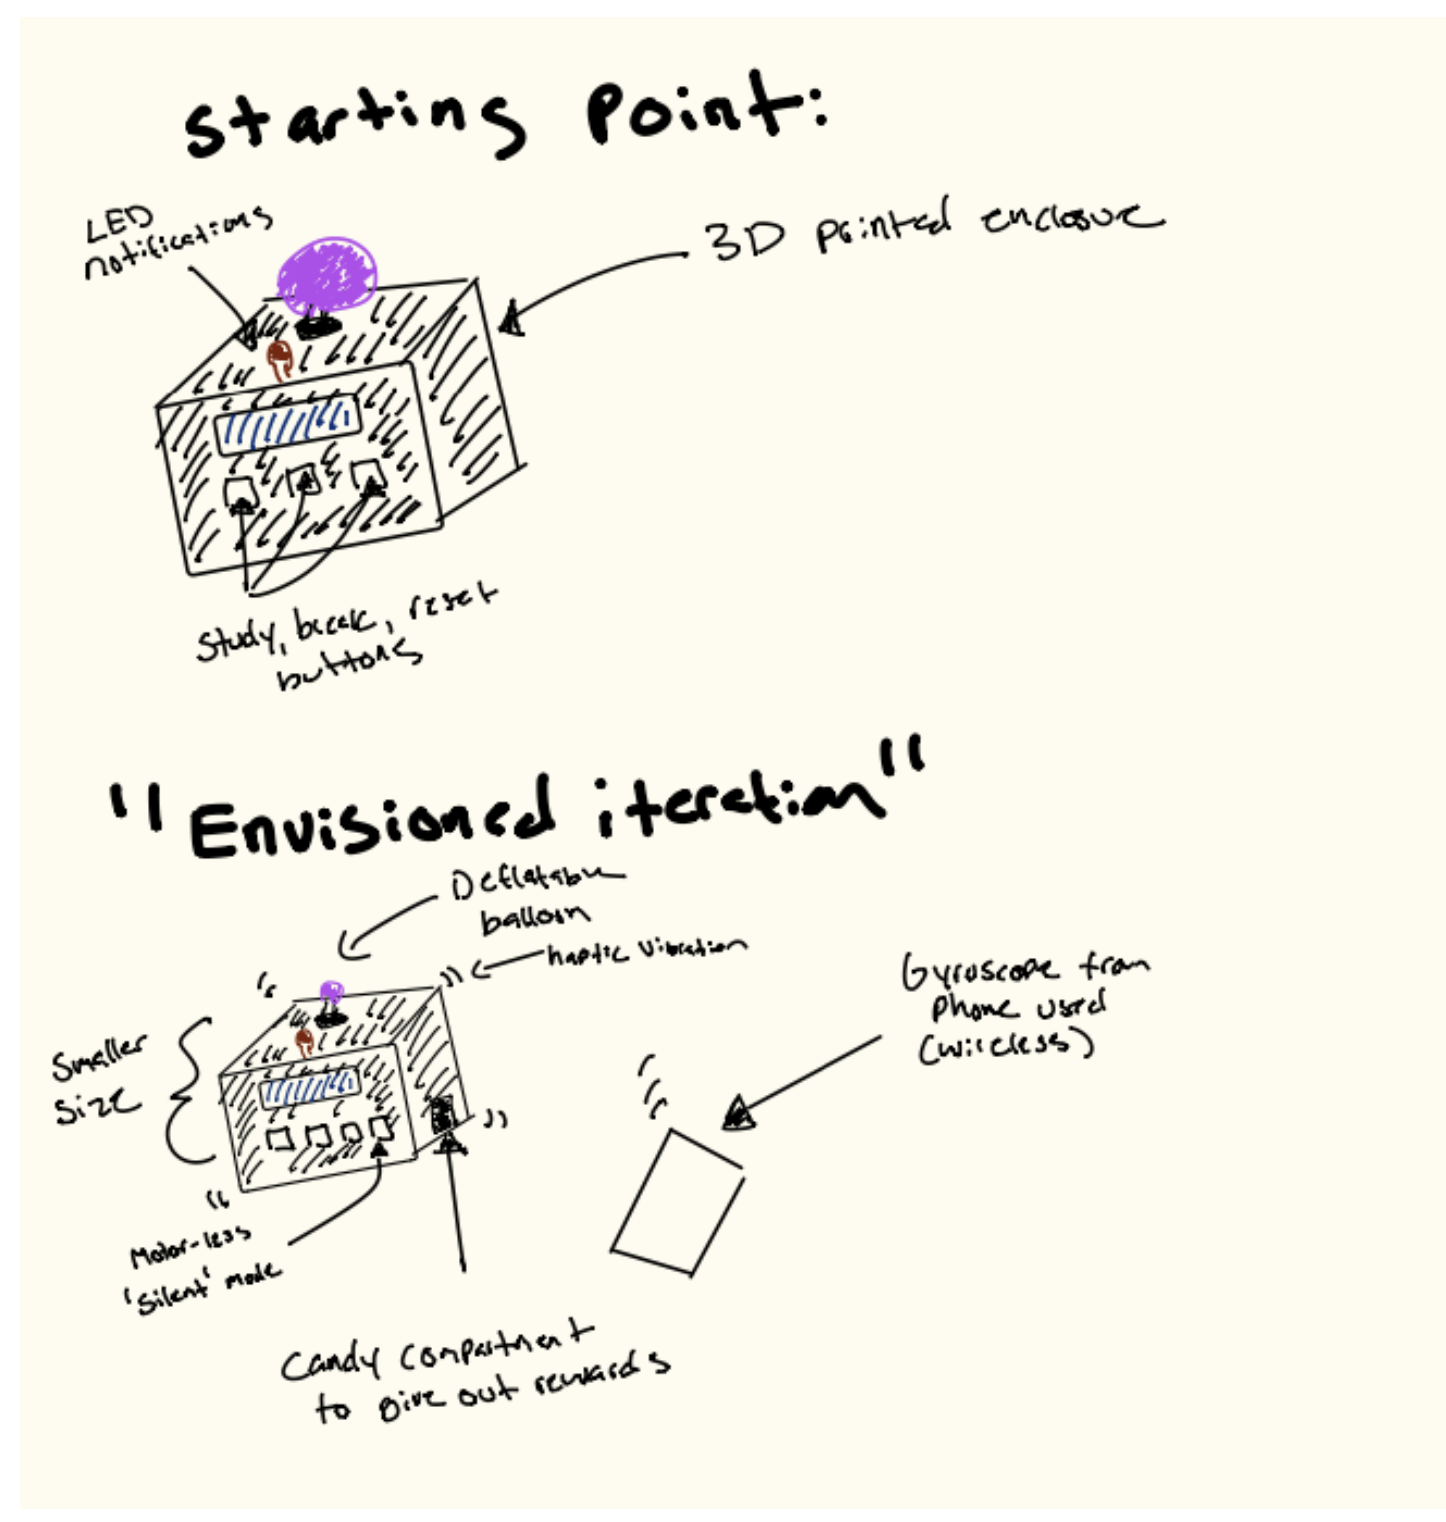 Starting Point:
LED
notifications
3D printed enclosure
Study, break, reset
buttons
"Envisioned iteration"
Deflatable
balloon
haptic vibration
Gyroscope from
phone used
(wireless)
Smaller
size
Motor-less
'silent' mode
Candy compartment
to give out rewards